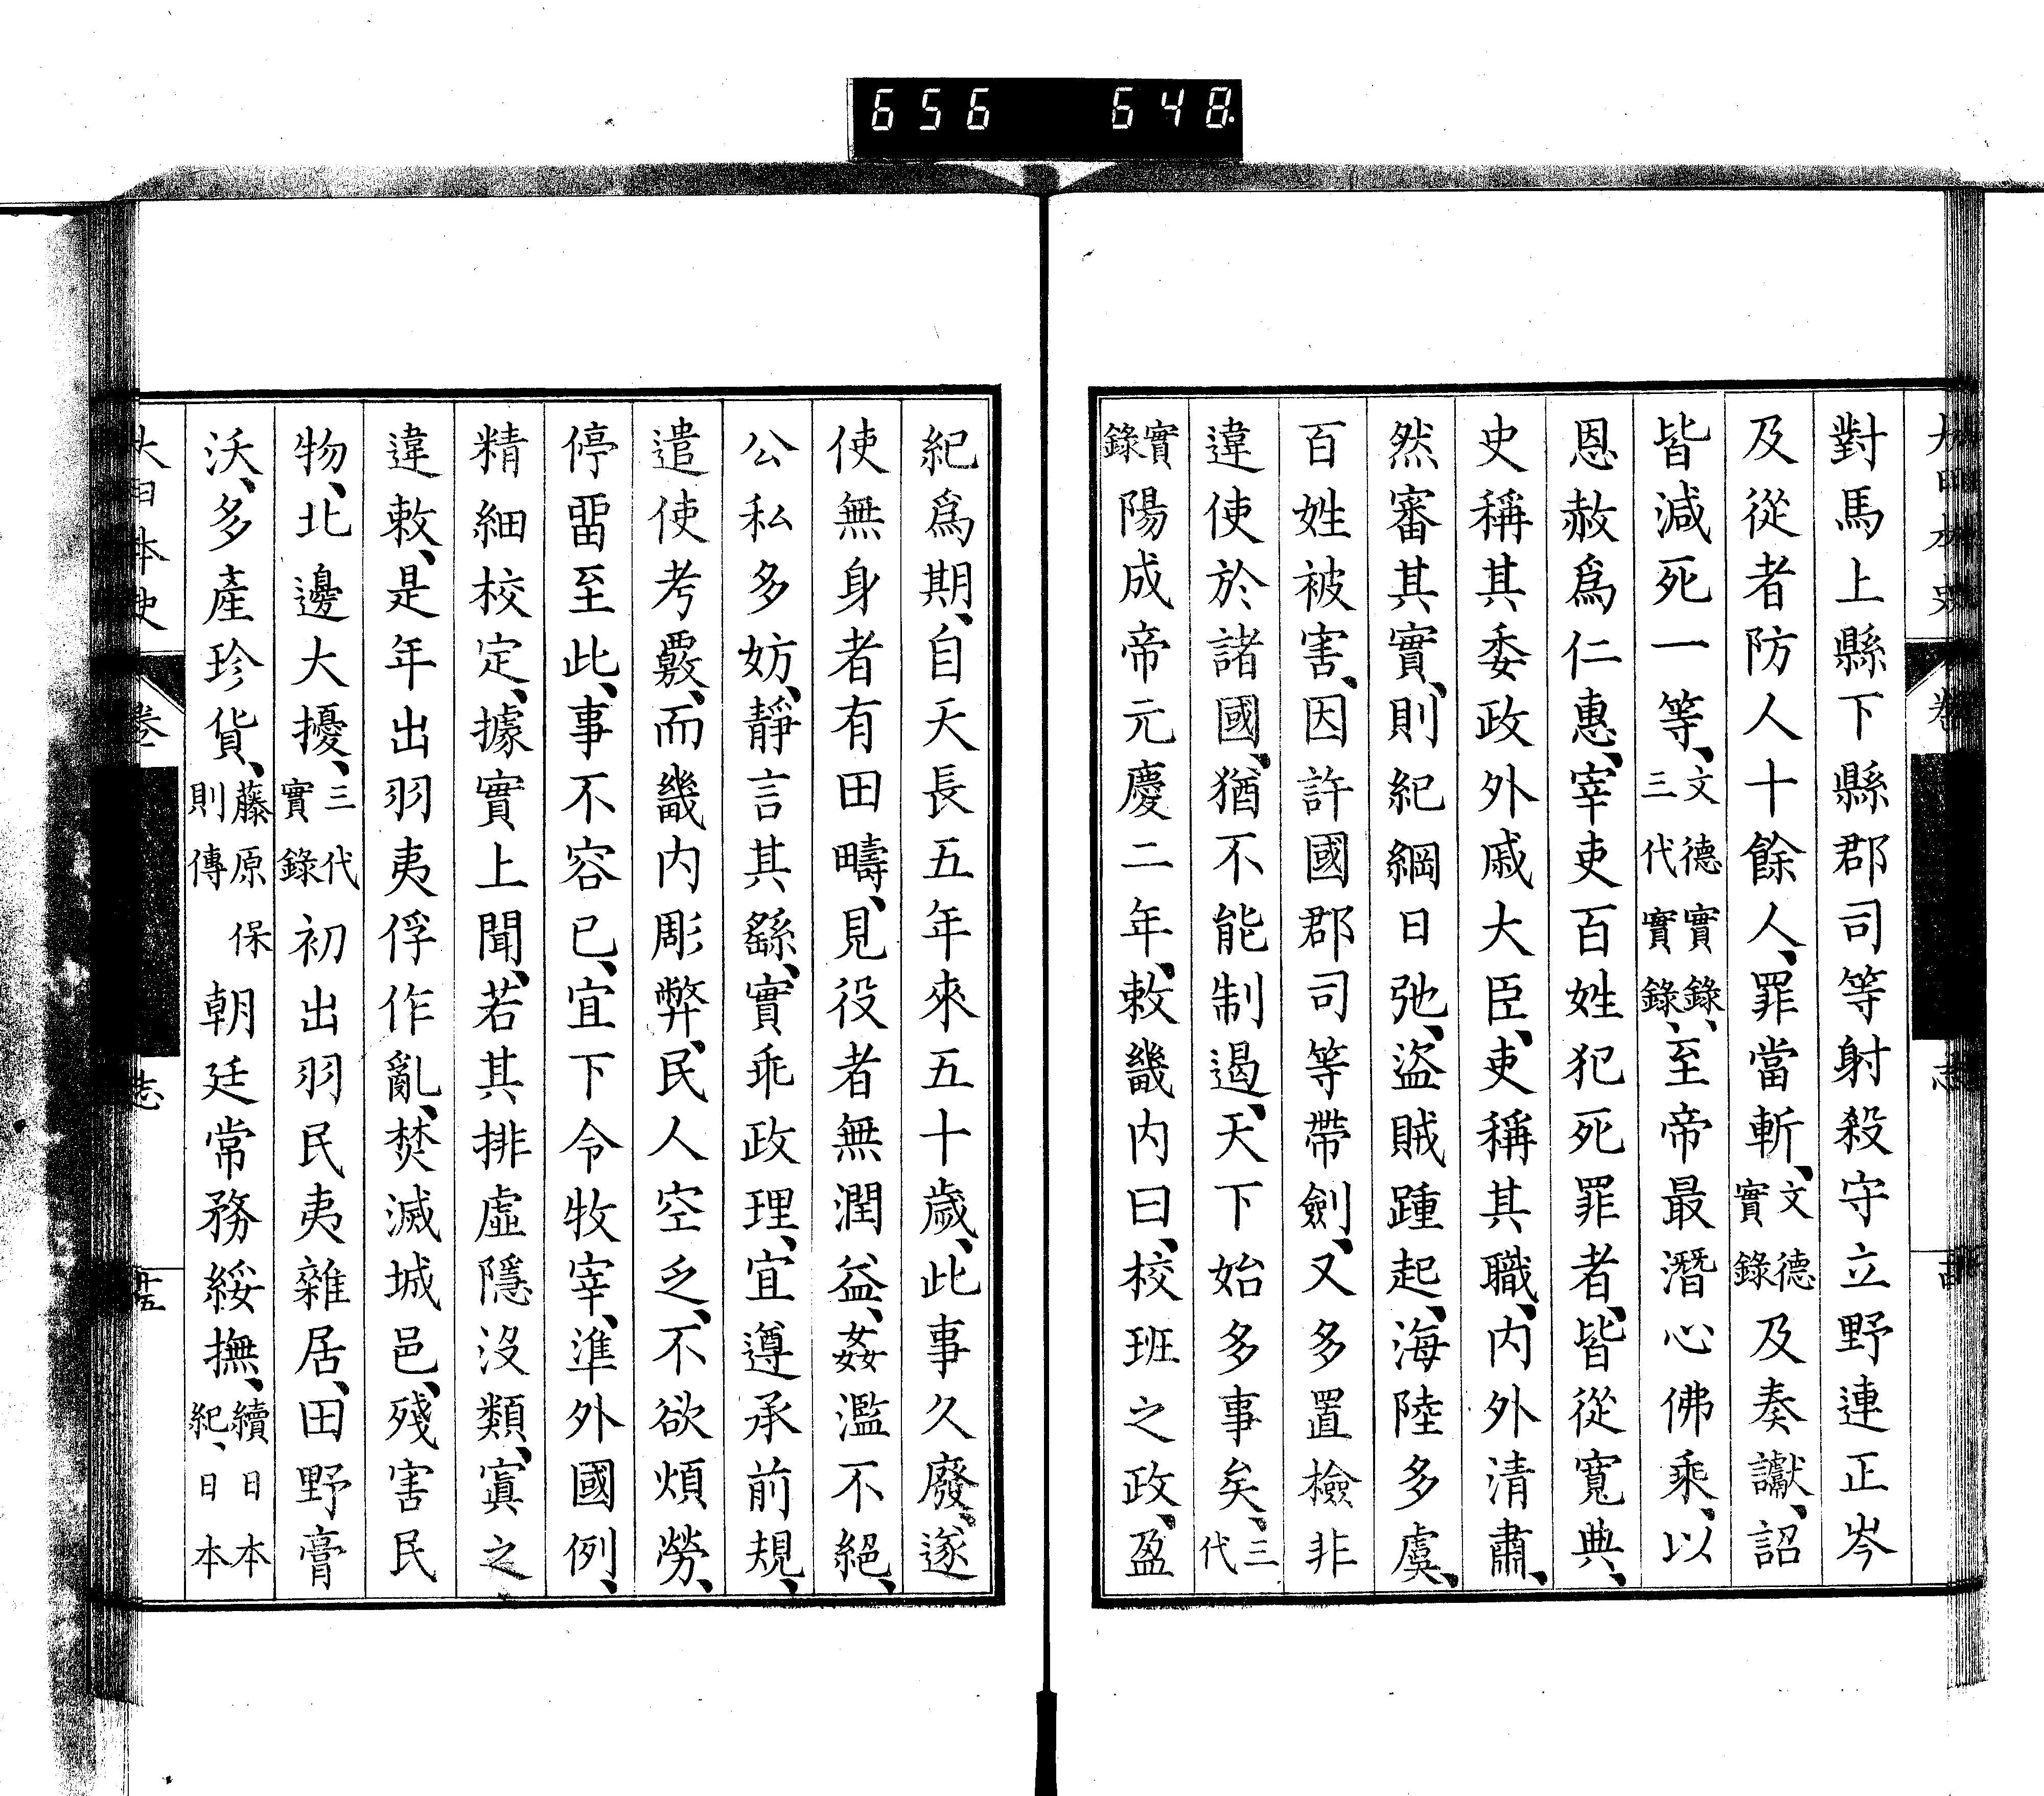 656 648
對馬上縣下縣郡司等射殺守立野連正岑
及從者防人十餘人、罪當斬、文德實錄及奏讞、詔
皆減死一等、文德實錄三代實錄、至帝最潛心佛乘、以
恩赦爲仁惠、宰吏百姓犯死罪者、皆從寬典、
史稱其委政外戚大臣、吏稱其職、内外清肅、
然審其實、則紀綱日弛、盜賊踵起、海陸多虞、
百姓被害、因許國郡司等帶劍、又多置檢非
違使於諸國、猶不能制遏、天下始多事矣、三代
實錄陽成帝元慶二年、敕畿内曰、校班之政、盈
紀爲期、自天長五年來五十歲、此事久廢、遂
使無身者有田疇、見役者無潤益、姦濫不絕、
公私多妨、靜言其繇、實乖政理、宜遵承前規、
遣使考覈、而畿内彫弊、民人空乏、不欲煩勞、
停畱至此、事不容已、宜下令牧宰、準外國例、
精細校定、據實上聞、若其排虛隱沒類、寘之
違敕、是年出羽夷俘作亂、焚滅城邑、殘害民
物、北邊大擾、三代實錄初出羽民夷雜居、田野膏
沃、多產珍貨、藤原保則傳朝廷常務綏撫、續日本紀、日本
大日本史 卷 志 廿五